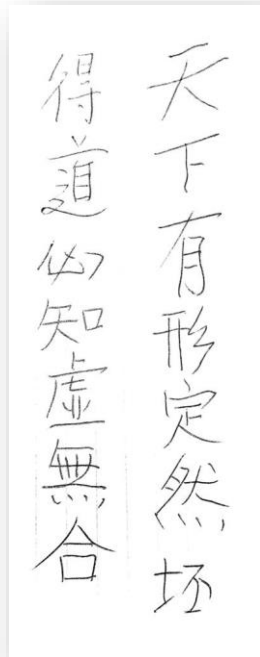 天下有形定然坯
得道必知虛無合